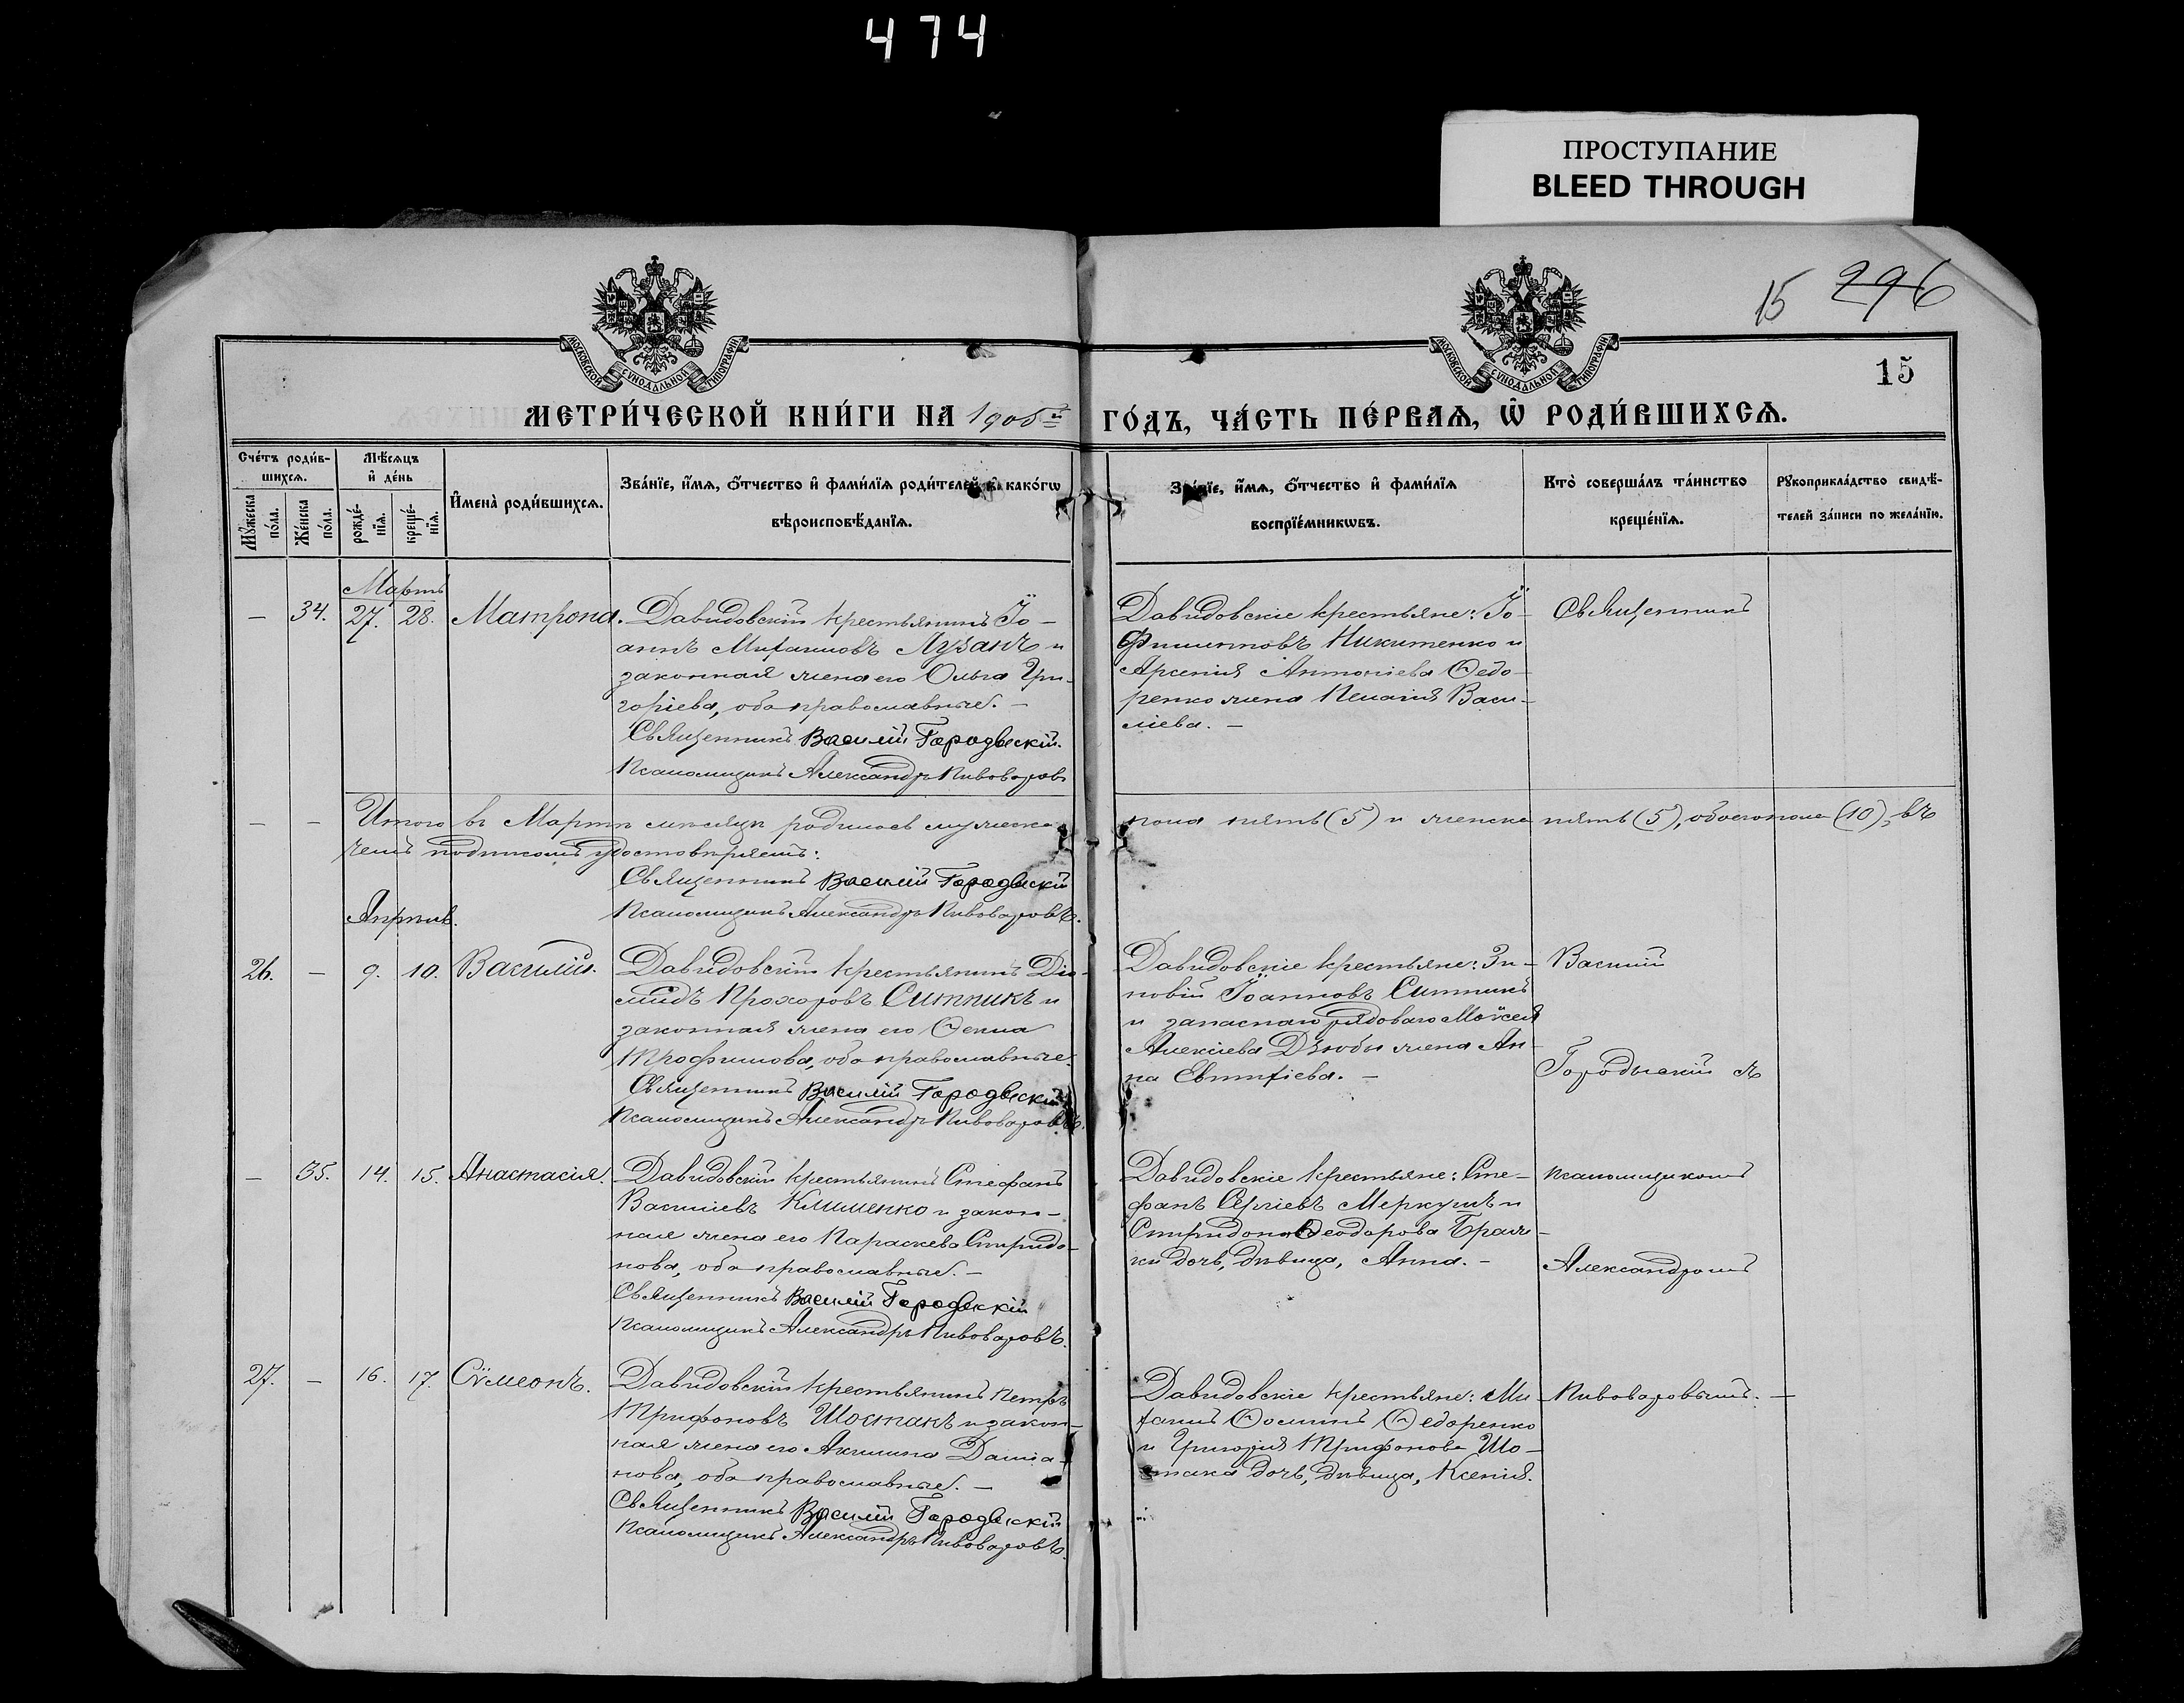 474
ПРОСТУПАНИЕ
BLEED THROUGH
15 296
15
МОСКОВСКОЙ СѴНОДАЛЬНОЙ ТИПОГРАФІИ
МОСКОВСКОЙ СѴНОДАЛЬНОЙ ТИПОГРАФІИ
МЕТРИ́ЧЕСКОЙ КНИ́ГИ НА
ГО́ДЪ, ЧА́СТЬ ПЕ́РВАѦ, Ѡ҆ РОДИ́ВШИХСѦ.
Сче́тъ роди́в-
шихсѧ.
Мꙋ́жеска по́ла.
Же́нска по́ла.
Мѣ́сѧцъ
и҆ де́нь
рожде́-
нїѧ.
креще́-
нїѧ.
И҆мена̀ роди́вшихсѧ.
Зва́нїе, и҆́мѧ, ѻ҆́тчество и҆ фами́лїѧ роди́телей, и҆ како́гѡ
вѣроисповѣ́данїѧ.
Зва́нїе, и҆́мѧ, ѻ҆́тчество и҆ фами́лїѧ
воспрїе́мникѡвъ.
Кто̀ соверша́лъ та́инство
креще́нїѧ.
Рꙋкоприкла́дство свидѣ́-
телей за́писи по жела́нїю.
Мартъ
— 34. 27. 28. Матрона.
Давидовскій крестьянинъ Іо-
аннъ Михаиловъ Лузанъ и
законная жена его Ольга Гри-
горіева, оба православные. —
Священникъ Василій Городыскій.
Псаломщикъ Александръ Пивоваровъ
Давидовскіе крестьяне: Іо-
Филипповъ Никитенко и
Арсенія Антоніева Ѳедо-
ренко жена Пелагія Васи-
ліева. —
Священникъ
— — Итого въ Мартѣ мѣсяцѣ родилось мужеска пола пять (5) и женска пять (5), обоего пола (10), въ
чемъ подписомъ удостовѣряемъ:
Священникъ Василій Городыскій
Псаломщикъ Александръ Пивоваровъ.
Апрѣль.
26. — 9. 10. Василій.
Давидовскій крестьянинъ Діо-
мидъ Прохоровъ Ситникъ и
законная жена его Ѳекла
Трофимова, оба православные.
Священникъ Василій Городыскій
Псаломщикъ Александръ Пивоваровъ.
Давидовскіе крестьяне: Зи-
новій Іоанновъ Ситникъ
и запаснаго рядоваго Моѵсея
Алексіева Дзюбы жена Ан-
на Евтихіева. —
Василій
Городыскій съ
— 35. 14. 15. Анастасія.
Давидовскій крестьянинъ Стефанъ
Василіевъ Клименко и закон-
ная жена его Параскева Спиридо-
нова, оба православные. —
Священникъ Василій Городыскій
Псаломщикъ Александръ Пивоваровъ.
Давидовскіе крестьяне: Сте-
фанъ Сергіевъ Меркушъ и
Спиридона Ѳеодорова Браж-
ки дочь, дѣвица, Анна. —
псаломщикомъ
Александромъ
27. — 16. 17. Сѵмеонъ.
Давидовскій крестьянинъ Петръ
Трифоновъ Шостакъ и закон-
ная жена его Акилина Даміа-
нова, оба православные. —
Священникъ Василій Городыскій
Псаломщикъ Александръ Пивоваровъ.
Давидовскіе крестьяне: Ми-
хаилъ Ѳоминъ Ѳедоренко
и Григорія Трифонова Шо-
стака дочь, дѣвица, Ксенія.
Пивоваровымъ. —